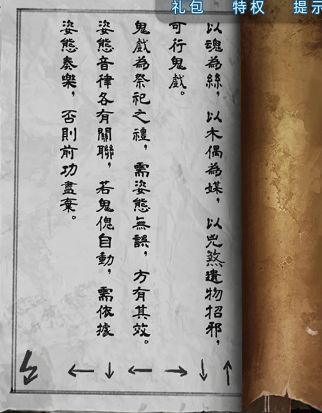 礼包 特权 提示
以魂為絲，以木偶為媒，以兇煞遺物招邪，
可行鬼戲。
鬼戲為祭祀之禮，需姿態無誤，方有其效。
姿態音律各有關聯，若鬼傀自動，需依據
姿態奏樂，否則前功盡棄。
↑ ↓ → ← ↓ ←